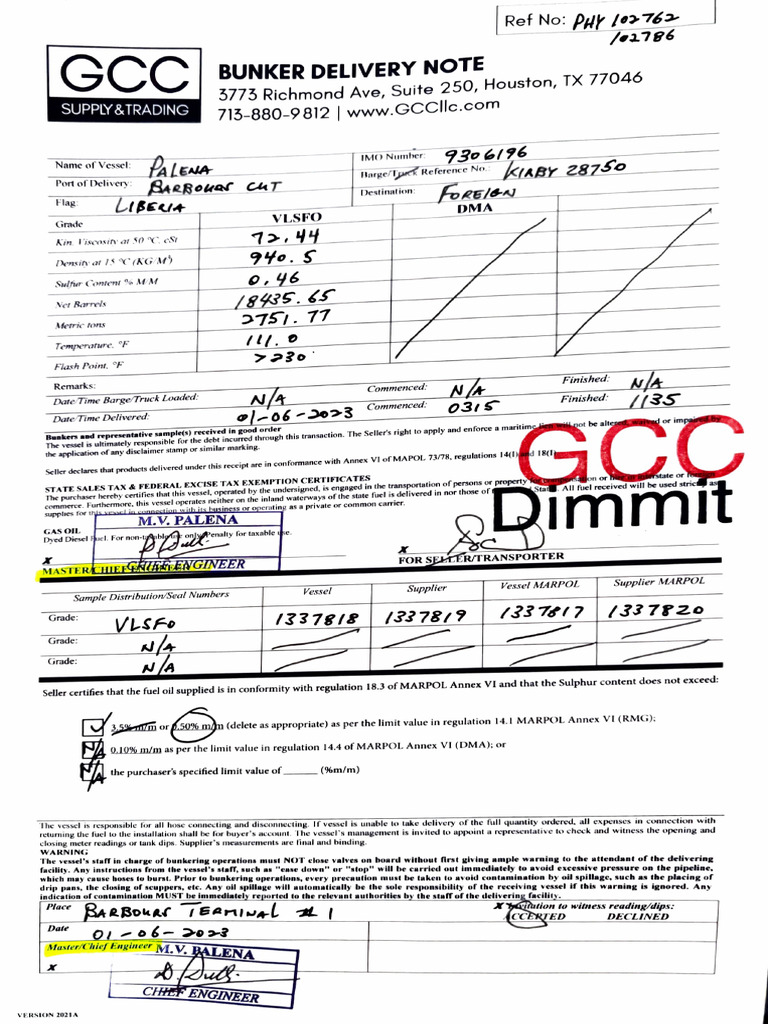 Ref No: PHY 102762
102786
GCC
SUPPLY & TRADING
BUNKER DELIVERY NOTE
3773 Richmond Ave, Suite 250, Houston, TX 77046
713-880-9812 | www.GCCllc.com
Name of Vessel: PALENA IMO Number: 9306196
Port of Delivery: BARBOURS CUT Barge/Truck Reference No.: KIRBY 28750
Flag: LIBERIA Destination: FOREIGN
Grade VLSFO DMA
Kin. Viscosity at 50 °C, cSt 72.44
Density at 15 °C (KG/M³) 940.5
Sulfur Content % M/M 0.46
Net Barrels 18435.65
Metric tons 2751.77
Temperature, °F 111.0
Flash Point, °F >230
Remarks:
Date/Time Barge/Truck Loaded: N/A Commenced: N/A Finished: N/A
Date/Time Delivered: 01-06-2023 Commenced: 0315 Finished: 1135
Bunkers and representative sample(s) received in good order
The vessel is ultimately responsible for the debt incurred through this transaction. The Seller's right to apply and enforce a maritime lien will not be altered, waived or impaired by
the application of any disclaimer stamp or similar marking.
Seller declares that products delivered under this receipt are in conformance with Annex VI of MAPOL 73/78, regulations 14(1) and 18(1)
GCC
Dimmit
STATE SALES TAX & FEDERAL EXCISE TAX EXEMPTION CERTIFICATES
The purchaser hereby certifies that this vessel, operated by the undersigned, is engaged in the transportation of persons or property for compensation or hire in interstate or foreign
commerce. Furthermore, this vessel operates neither on the inland waterways of the state fuel is delivered in nor those of State. All fuel received will be used strictly as
supplies for this vessel in connection with its business or operating as a private or common carrier.
GAS OIL
Dyed Diesel Fuel. For non-taxable use only/Penalty for taxable use.
M.V. PALENA
CHIEF ENGINEER
x
MASTER/CHIEF ENGINEER
x
FOR SELLER/TRANSPORTER
Sample Distribution/Seal Numbers Vessel Supplier Vessel MARPOL Supplier MARPOL
Grade: VLSFO 1337818 1337819 1337817 1337820
Grade: N/A
Grade: N/A
Seller certifies that the fuel oil supplied is in conformity with regulation 18.3 of MARPOL Annex VI and that the Sulphur content does not exceed:
3.5% m/m or 0.50% m/m (delete as appropriate) as per the limit value in regulation 14.1 MARPOL Annex VI (RMG);
N/A 0.10% m/m as per the limit value in regulation 14.4 of MARPOL Annex VI (DMA); or
N/A the purchaser's specified limit value of ______ (%m/m)
The vessel is responsible for all hose connecting and disconnecting. If vessel is unable to take delivery of the full quantity ordered, all expenses in connection with
returning the fuel to the installation shall be for buyer's account. The vessel's management is invited to appoint a representative to check and witness the opening and
closing meter readings or tank dips. Supplier's measurements are final and binding.
WARNING
The vessel's staff in charge of bunkering operations must NOT close valves on board without first giving ample warning to the attendant of the delivering
facility. Any instructions from the vessel's staff, such as "ease down" or "stop" will be carried out immediately to avoid excessive pressure on the pipeline,
which may cause hoses to burst. Prior to bunkering operations, every precaution must be taken to avoid contamination by oil spillage, such as the placing of
drip pans, the closing of scuppers, etc. Any oil spillage will automatically be the sole responsibility of the receiving vessel if this warning is ignored. Any
indication of contamination MUST be immediately reported to the relevant authorities by the staff of the delivering facility.
Place BARBOURS TERMINAL #1 x Invitation to witness reading/dips:
ACCEPTED DECLINED
Date 01-06-2023
Master/Chief Engineer
x
M.V. PALENA
CHIEF ENGINEER
VERSION 2021A